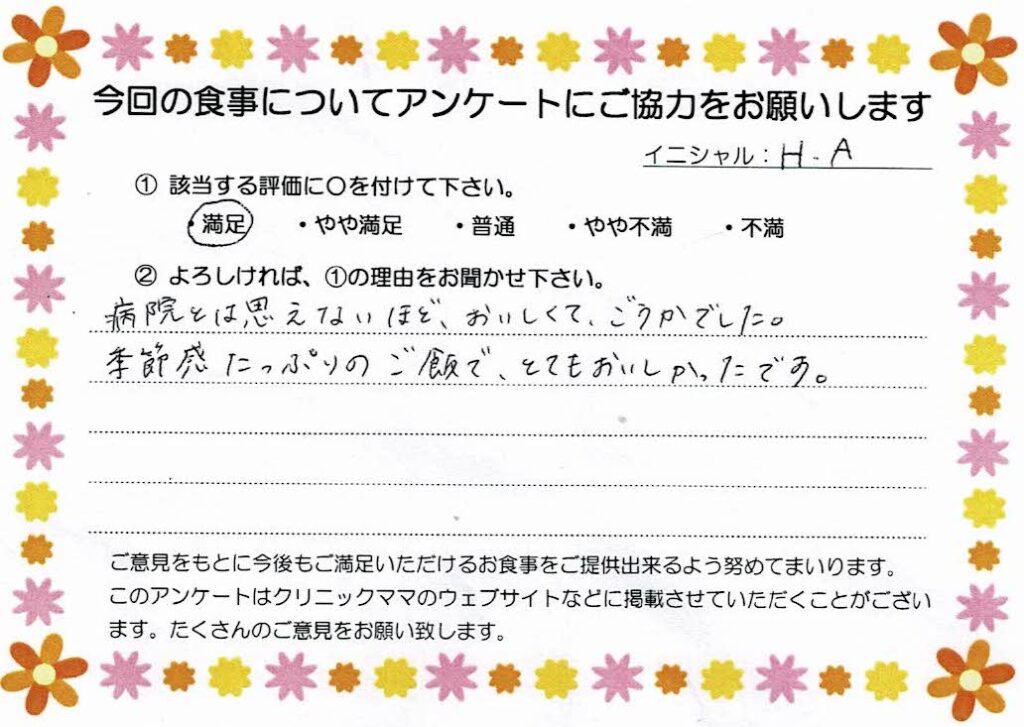 今回の食事についてアンケートにご協力をお願いします
イニシャル：H.A
① 該当する評価に〇を付けて下さい。
・満足 ・やや満足 ・普通 ・やや不満 ・不満
② よろしければ、①の理由をお聞かせ下さい。
病院とは思えないほど、おいしくて、ごうかでした。
季節感たっぷりのご飯で、とてもおいしかったです。
ご意見をもとに今後もご満足いただけるお食事をご提供出来るよう努めてまいります。
このアンケートはクリニックママのウェブサイトなどに掲載させていただくことがござい
ます。たくさんのご意見をお願い致します。